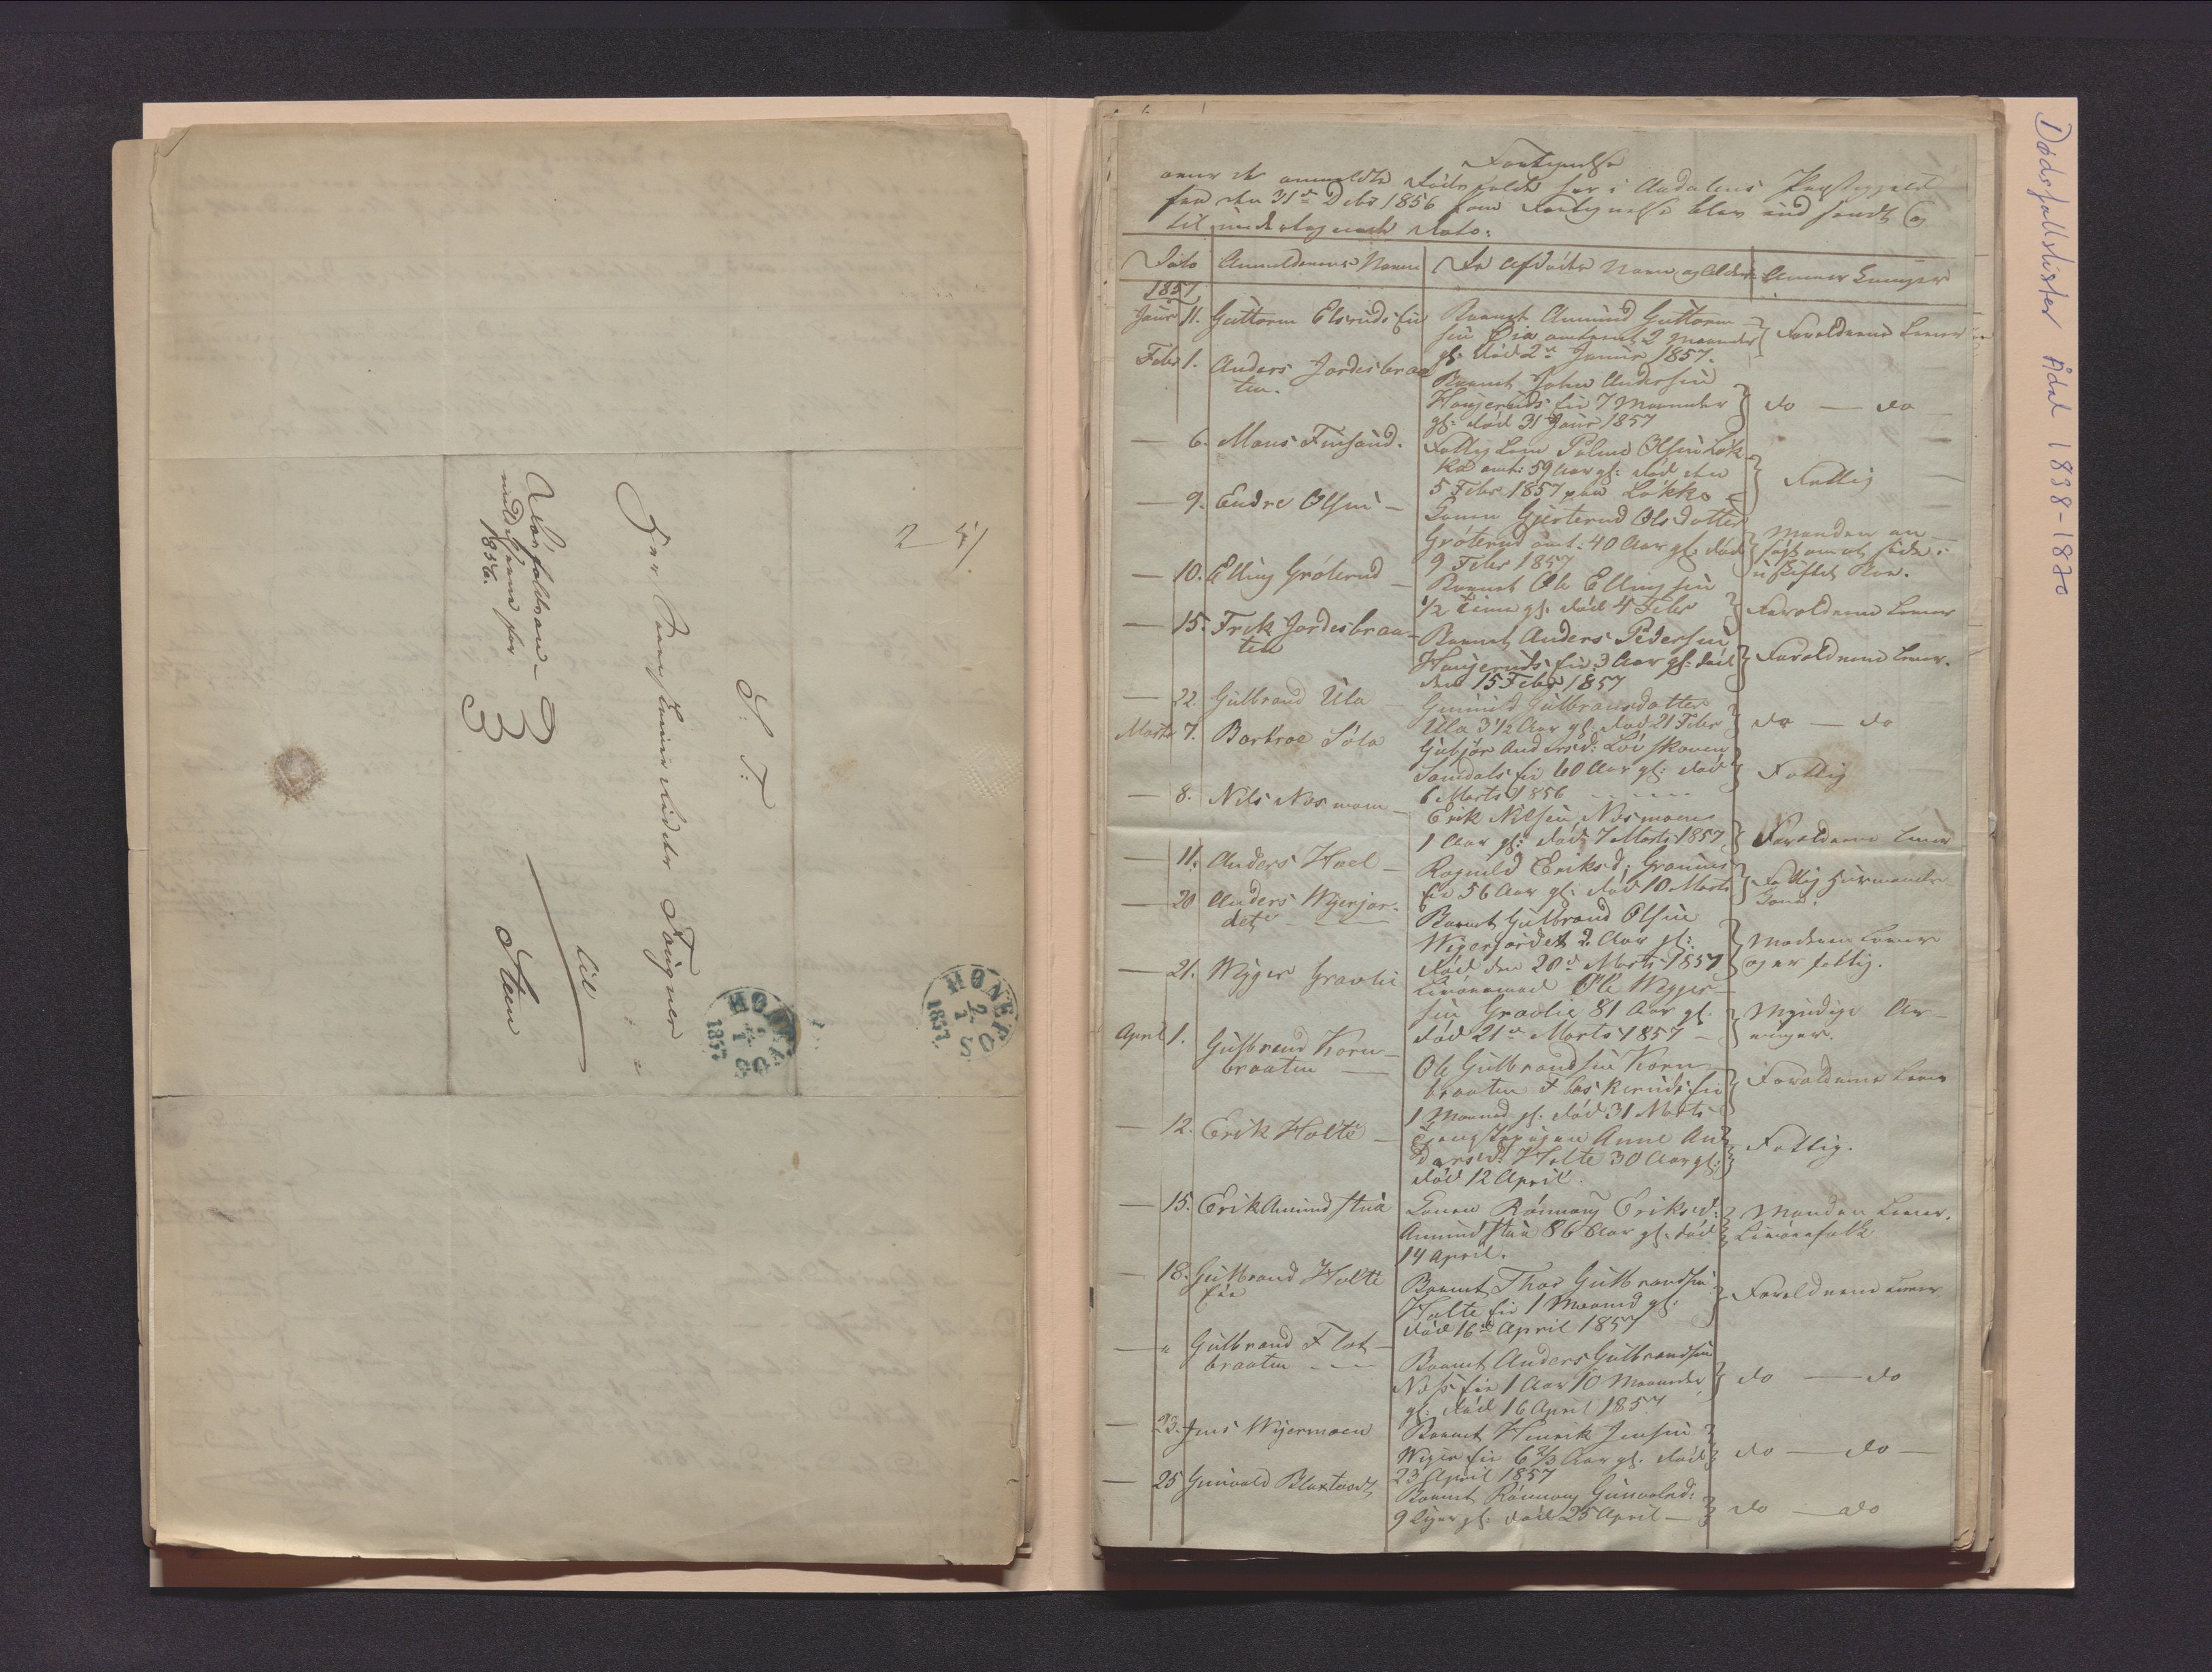 Dødsfallslister Ådal 1838-1870
S. T.
Herr
Faigner
til
Steen
1856.
3
2
HØNEFOS
2 1
1857
HØNEFOS
1857
Fortegnelse
over de anmeldte Dødsfalde her i Aadalens Præstegjeld
fra den 31te Decbr 1856 som Fortegnelse blev ind sendt og
til undertegnede Dato.
Dato
Anmelderens Navn
De afdødes Navn og Alder
Anmerkninger
1857
Janr 11.
Guttorm Elsruds Eie
Barnet Amund Guttorm-
sen Eie omtrent 2 Maaneder
gl. død 2 Janur 1857.
Forældrene Lever
Febr 1.
Anders Jordesbraa
ten.
Barnet John Andersen
Haugeruds Eie 7 Maaneder
gl. død 31 Janr 1857
do — do
— 6.
Mons Finsand.
Fattig Lem Palme Olsen Løk
ke omt: 59 Aar gl: død den
5 Febr 1857 paa Løkke
Fattig
— 9.
Endre Olsen —
Konen Gjertrud Olsdatter
Grøterud omt: 40 Aar gl. død
9 Febr 1857
Manden an-
søgt om at sidde i
uskiftet Boe.
— 10.
Elling Grøterud —
Barnet Ole Ellingsen
1/2 Time gl. død 4 Febr
Forældrene Lever
— 15.
Erik Jordesbraa-
ten
Barnet Anders Pedersen
Haugeruds Eie 3 Aar gl: død
den 15 Febr 1857
Forældrene Lever.
— 22.
Gulbrand Ula —
Gunild Gulbransdatter
Ula 3 1/2 Aar gl. død 21 Febr
do — do
Marts 7.
Barbroe Søla
Gubjør Andersd: Løvskoven
Samdals Eie 60 Aar gl: død
6 Marts 1856
Fattig
— 8.
Nils Næsmoen —
Erik Nilsen Næsmoen
1 Aar gl: død 7 Marts 1857
Forældrene Lever
— 11.
Anders Hoel —
Ragnild Eriksd: Granum
Eie 56 Aar gl. død 10 Marts
Fattig Huusmands
Kone.
— 20
Anders Wigerjor-
det —
Barnet Gulbrand Olsen
Wigerjordet 2 Aar gl:
død den 20de Marts 1857
Moderen Lever
og er fattig.
— 21.
Wigger Gravlie
Livøremand Ole Wigger-
sen Gravlie 81 Aar gl.
død 21de Marts 1857 —
Myndige Ar-
vinger.
April 1.
Gulbrand Korn-
braaten —
Ole Gulbrandsen Korn-
braaten Flaskeruds Eie
1 Maaned gl. død 31 Marts
Forældrene Lever
— 12.
Erik Holte —
Anne An
dersd: Holte 30 Aar gl:
død 12 April.
Fattig.
— 15.
Erik Amundstua
Konen Rønnaug Eriksd:
Amundstua 86 Aar gl. død
14 April.
Manden Lever.
Livørefolk
— 18.
Gulbrand Holte
Eie
Barnet Thor Gulbrandsen
Holte Eie 1 Maaned gl.
død 16de April 1857
Forældrene Lever
— "
Gulbrand Flat-
braaten —
Barnet Anders Gulbrandsen
Næs Eie 1 Aar 10 Maaneder
gl. død 16 April 1857
do — do
— 23.
Jens Wigermoen
Barnet Henrik Jensen
Wiger Eie 6 2/3 Aar gl. død
23 April 1857
do — do —
— 25
Gunvald Blaxtvedt
Barnet Rønnaug Gunvalsd:
9 Uger gl: død 25 April —
do — do